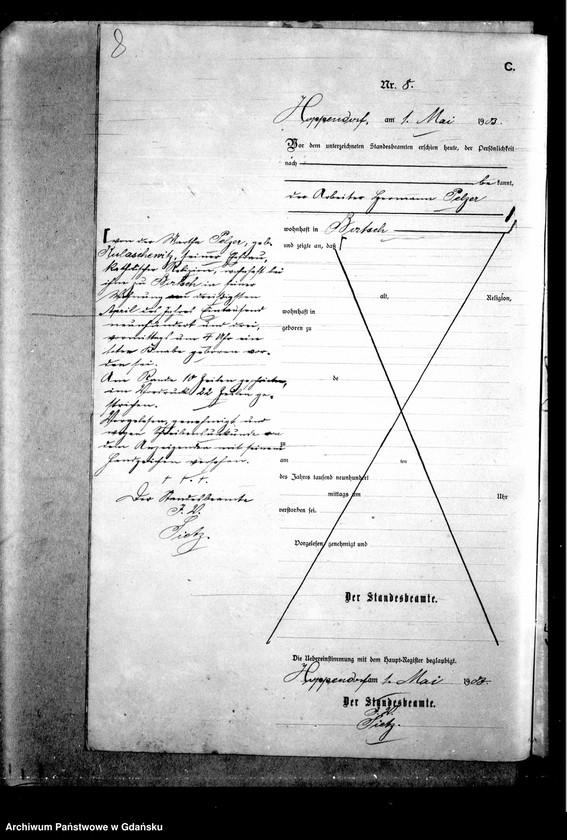 8
C.
Nr. 8.
Hoppendorf, am 1. Mai 1903.
Vor dem unterzeichneten Standesbeamten erschien heute, der Persönlichkeit
nach
be kannt,
der Arbeiter Hermann Pelzer
wohnhaft in Bortsch
und zeigte an, daß
von der Martha Pelzer, geb.
seiner Ehefrau,
katholischer Religion, wohnhaft bei
ihm zu Bortsch in seiner
Wohnung am dreißigsten
April des Jahres Eintausend
neunhundert und drei,
vormittags um 4 Uhr ein
todter Knabe geboren wor-
den sei.
Am Rande 10 Zeilen geschrieben,
im Vordruck 22 Zeilen ge-
strichen.
Vorgelesen, genehmigt und
wegen Schreibensunkunde von
dem Anzeigenden mit seinem
Handzeichen versehen.
+ + +
Der Standesbeamte
J. V.
Tietz.
alt, Religion,
wohnhaft in
geboren zu
de
zu
am ten
des Jahres tausend neunhundert
mittags um Uhr
verstorben sei.
Vorgelesen, genehmigt und
Der Standesbeamte.
Die Uebereinstimmung mit dem Haupt-Register beglaubigt.
Hoppendorf am 1. Mai 1903.
Der Standesbeamte.
J. V.
Tietz.
Archiwum Państwowe w Gdańsku